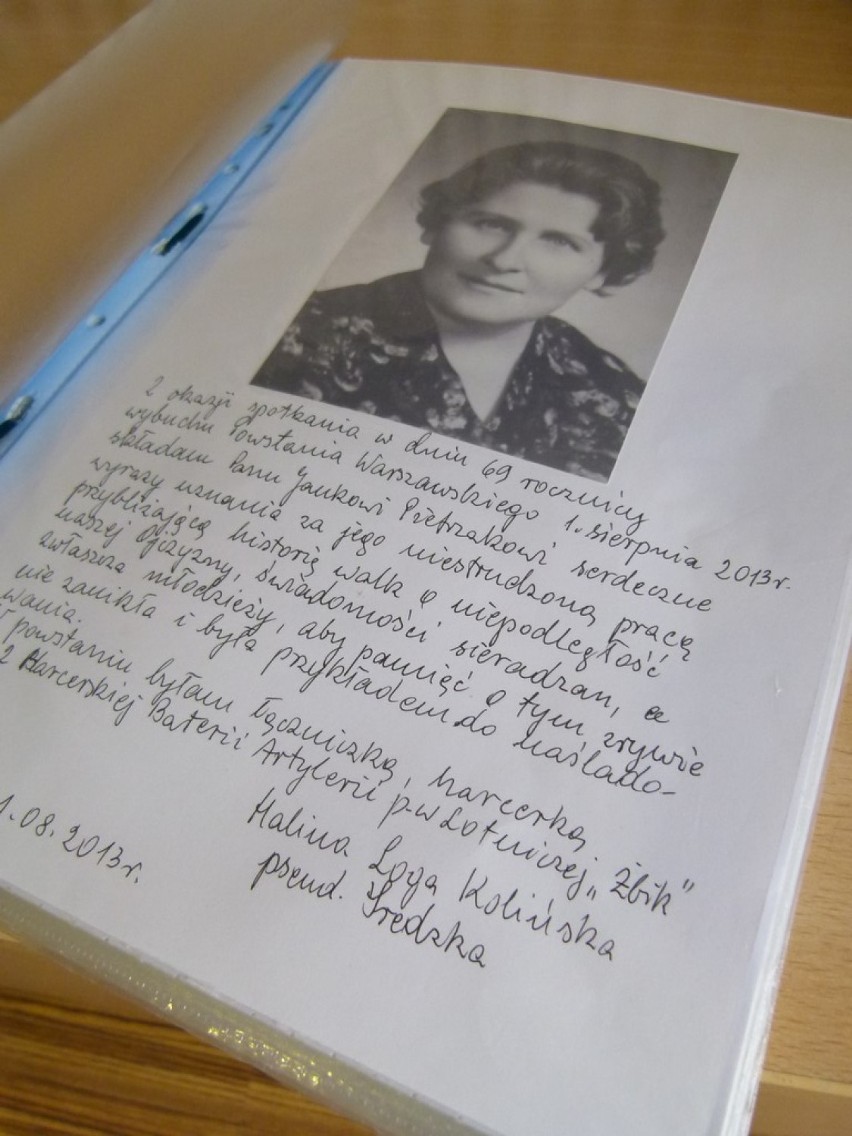 Z okazji spotkania w dniu 69 rocznicy
wybuchu Powstania Warszawskiego 1. sierpnia 2013r.
składam Panu Jankowi Pietrzakowi serdeczne
wyrazy uznania za jego niestrudzoną pracę
przybliżającą historię walk o niepodległość
naszej Ojczyzny, świadomości sieradzan, a
zwłaszcza młodzieży, aby pamięć o tym zrywie
nie zanikła i była przykładem do naślado-
wania.
powstaniu byłam łączniczką, harcerką
2 Harcerskiej Baterii Artylerii p-wLotniczej „Żbik"
Halina Loga Kolińska
pseud. Średzka
1.08.2013r.